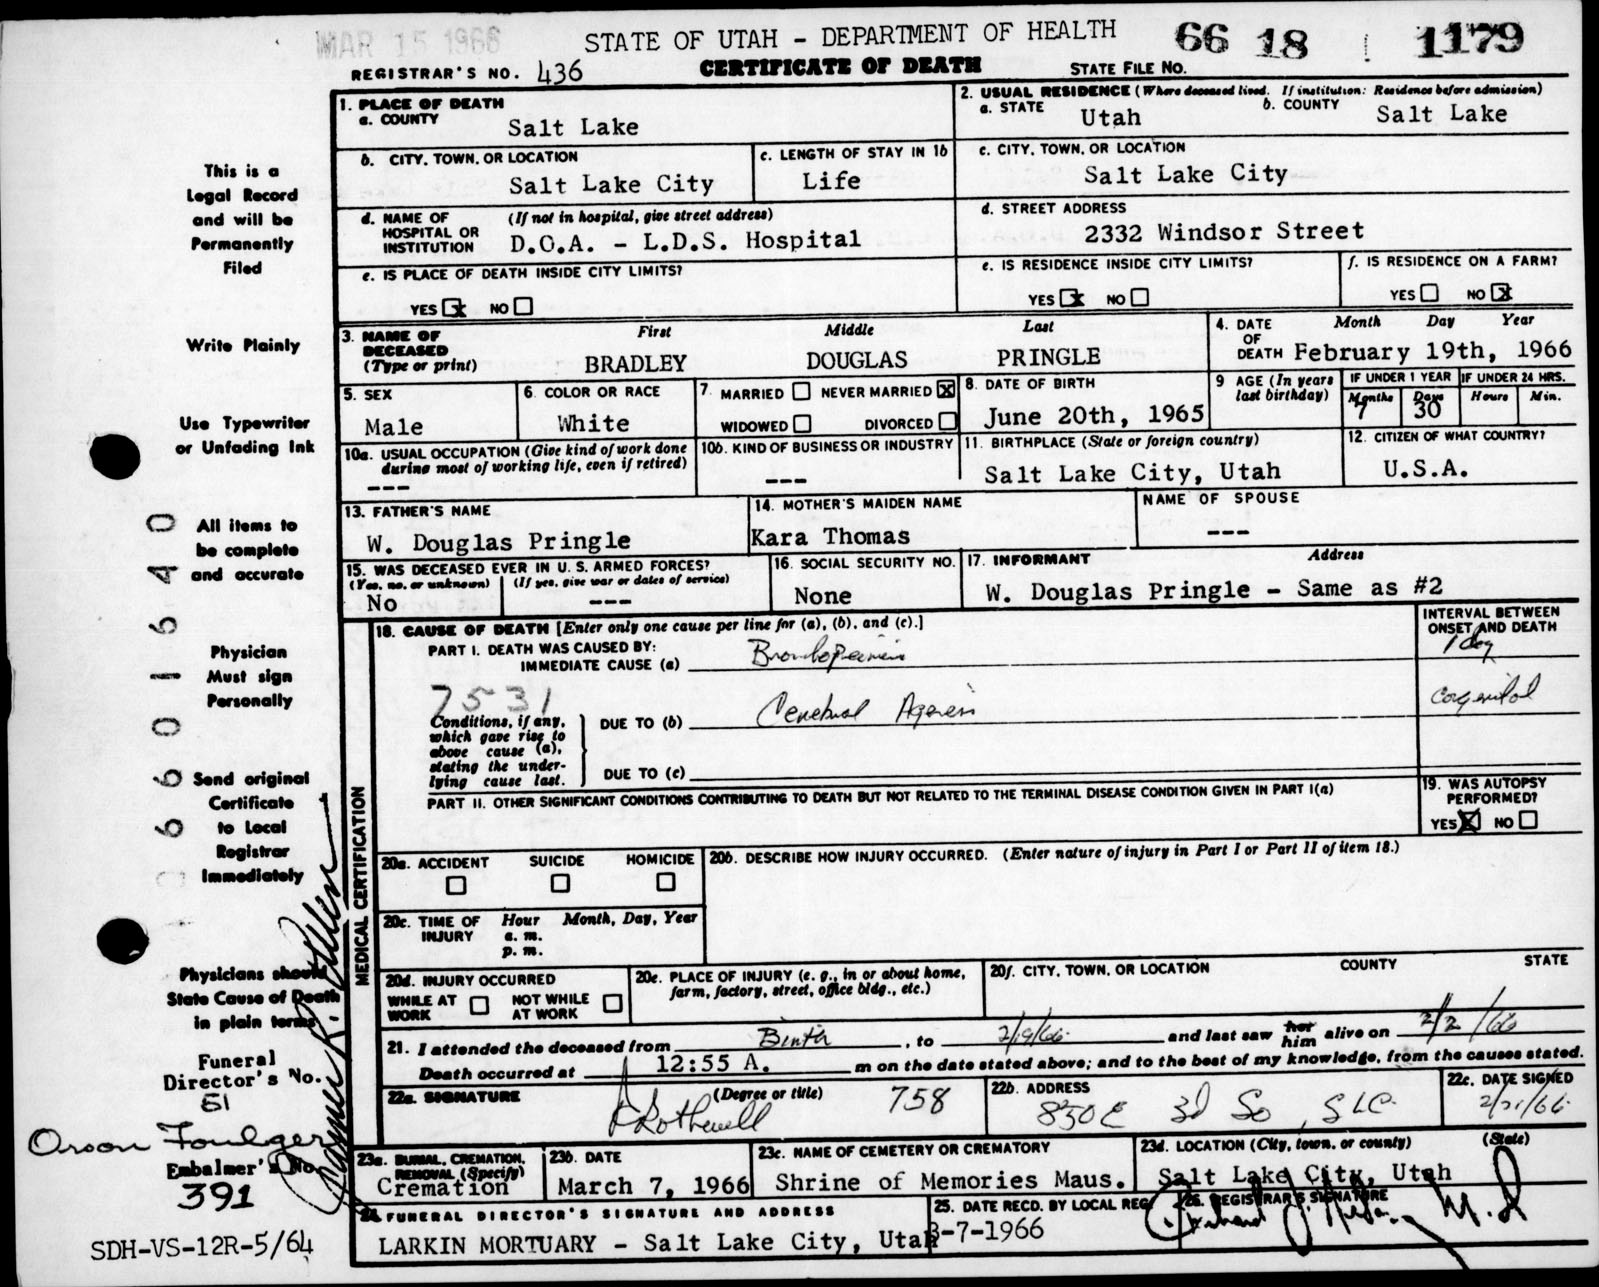 MAR 15 1966
STATE OF UTAH - DEPARTMENT OF HEALTH
66 18 1179
REGISTRAR'S NO. 436
CERTIFICATE OF DEATH
STATE FILE NO.
1. PLACE OF DEATH
a. COUNTY
Salt Lake
2. USUAL RESIDENCE (Where deceased lived. If institution: Residence before admission)
a. STATE Utah b. COUNTY Salt Lake
b. CITY, TOWN, OR LOCATION
Salt Lake City
c. LENGTH OF STAY IN 1b
Life
c. CITY, TOWN, OR LOCATION
Salt Lake City
d. NAME OF HOSPITAL OR INSTITUTION (If not in hospital, give street address)
D.O.A. - L.D.S. Hospital
d. STREET ADDRESS
2332 Windsor Street
e. IS PLACE OF DEATH INSIDE CITY LIMITS?
YES x NO
e. IS RESIDENCE INSIDE CITY LIMITS?
YES x NO
f. IS RESIDENCE ON A FARM?
YES NO x
3. NAME OF DECEASED (Type or print)
First Middle Last
BRADLEY DOUGLAS PRINGLE
4. DATE OF DEATH
Month Day Year
February 19th, 1966
5. SEX
Male
6. COLOR OR RACE
White
7. MARRIED NEVER MARRIED X
WIDOWED DIVORCED
8. DATE OF BIRTH
June 20th, 1965
9 AGE (In years last birthday)
IF UNDER 1 YEAR IF UNDER 24 HRS.
Months Days Hours Min.
7 30
10a. USUAL OCCUPATION (Give kind of work done during most of working life, even if retired)
---
10b. KIND OF BUSINESS OR INDUSTRY
---
11. BIRTHPLACE (State or foreign country)
Salt Lake City, Utah
12. CITIZEN OF WHAT COUNTRY?
U.S.A.
13. FATHER'S NAME
W. Douglas Pringle
14. MOTHER'S MAIDEN NAME
Kara Thomas
NAME OF SPOUSE
---
15. WAS DECEASED EVER IN U. S. ARMED FORCES?
(Yes, no, or unknown) (If yes, give war or dates of service)
No ---
16. SOCIAL SECURITY NO.
None
17. INFORMANT Address
W. Douglas Pringle - Same as #2
MEDICAL CERTIFICATION
18. CAUSE OF DEATH [Enter only one cause per line for (a), (b), and (c).]
INTERVAL BETWEEN ONSET AND DEATH
PART I. DEATH WAS CAUSED BY:
IMMEDIATE CAUSE (a)
1 day
7531
Conditions, if any, which gave rise to above cause (a), stating the underlying cause last.
DUE TO (b) Cerebral Agenesis
Congenital
DUE TO (c)
PART II. OTHER SIGNIFICANT CONDITIONS CONTRIBUTING TO DEATH BUT NOT RELATED TO THE TERMINAL DISEASE CONDITION GIVEN IN PART I(a)
19. WAS AUTOPSY PERFORMED?
YES X NO
20a. ACCIDENT SUICIDE HOMICIDE
20b. DESCRIBE HOW INJURY OCCURRED. (Enter nature of injury in Part I or Part II of item 18.)
20c. TIME OF INJURY
Hour Month, Day, Year
a. m.
p. m.
20d. INJURY OCCURRED
WHILE AT WORK NOT WHILE AT WORK
20e. PLACE OF INJURY (e. g., in or about home, farm, factory, street, office bldg., etc.)
20f. CITY, TOWN, OR LOCATION COUNTY STATE
21. I attended the deceased from Birth, to 2/19/66 and last saw her him alive on 2/2/66
Death occurred at 12:55 A. m on the date stated above; and to the best of my knowledge, from the causes stated.
22a. SIGNATURE (Degree or title)
758
22b. ADDRESS
850 E 3d So, SLC
22c. DATE SIGNED
2/21/66
23a. BURIAL, CREMATION, REMOVAL (Specify)
Cremation
23b. DATE
March 7, 1966
23c. NAME OF CEMETERY OR CREMATORY
Shrine of Memories Maus.
23d. LOCATION (City, town, or county) (State)
Salt Lake City, Utah
24. FUNERAL DIRECTOR'S SIGNATURE AND ADDRESS
LARKIN MORTUARY - Salt Lake City, Utah
25. DATE RECD. BY LOCAL REG.
3-7-1966
26. REGISTRAR'S SIGNATURE
M.D
This is a
Legal Record
and will be
Permanently
Filed
Write Plainly
Use Typewriter
or Unfading Ink
All items to
be complete
and accurate
Physician
Must sign
Personally
Send original
Certificate
to Local
Registrar
Immediately
Physicians should
State Cause of Death
in plain terms
6601640
Funeral
Director's No.
51
Orson Foulger
Embalmer's No.
391
SDH-VS-12R-5/64